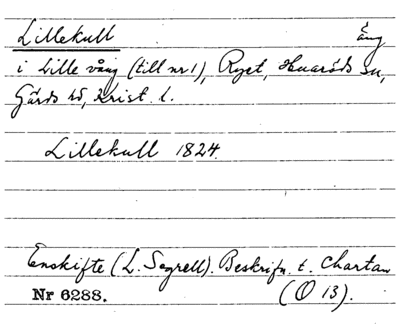 Lillekull Äng
i Lille vång (till nr 1), Ryet, Huaröds sn,
Gärds hd, Krist. l.
Lillekull 1824.
Enskifte (L. Segrell). Beskrifn. t. Chartan
Nr 6288. (O 13).